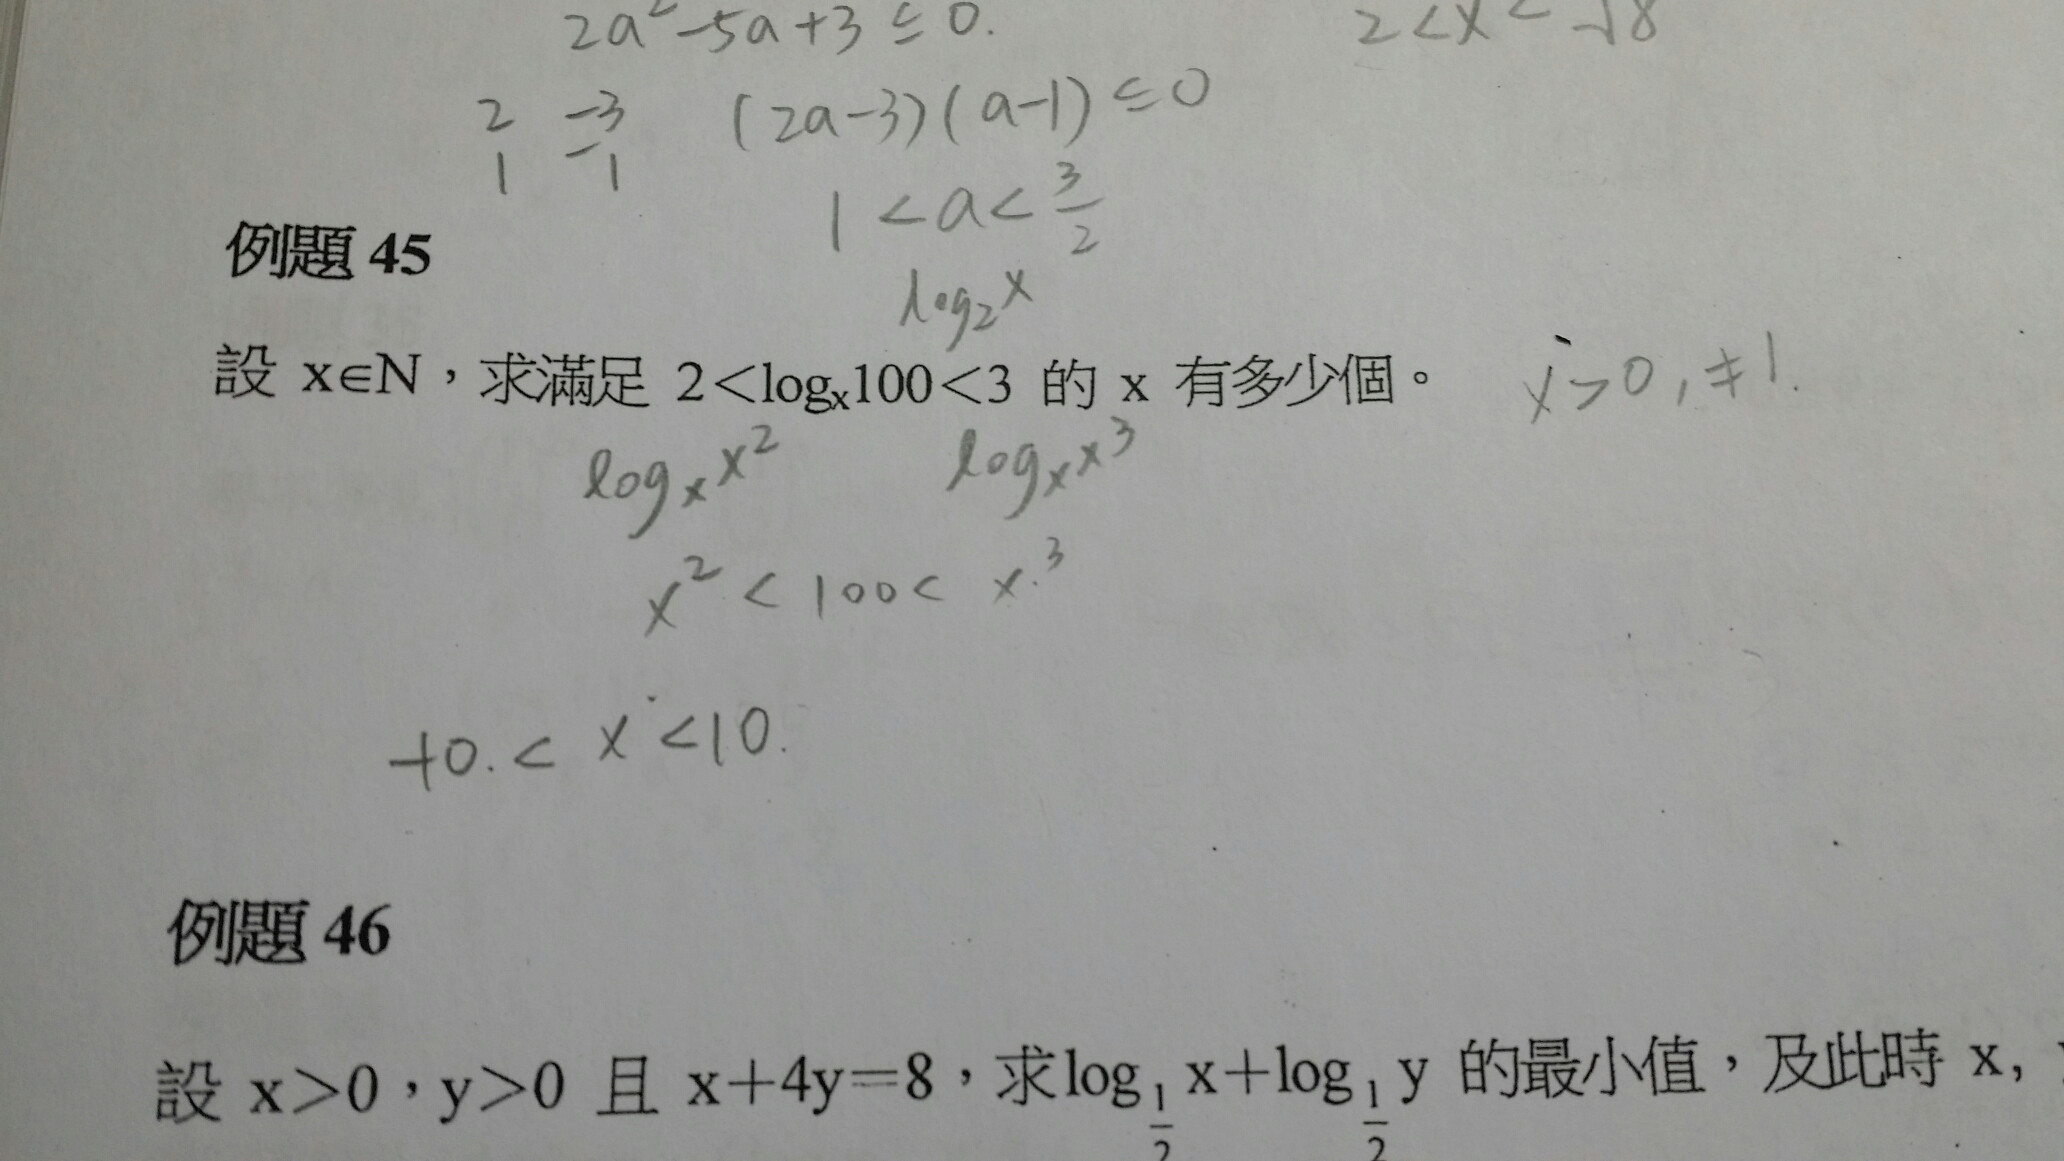 2a²-5a+3≤0.
2<x<√8
2 -3 (2a-3)(a-1)≤0
1 -1
1<a<3/2
例題 45
log₂x
設 x∈N，求滿足 2<logₓ100<3 的 x 有多少個。 x>0, ≠1.
logₓx² logₓx³
x²<100<x³
-10.<x<10.
例題 46
設 x>0，y>0 且 x+4y=8，求log_{1/2} x+log_{1/2} y 的最小值，及此時 x,